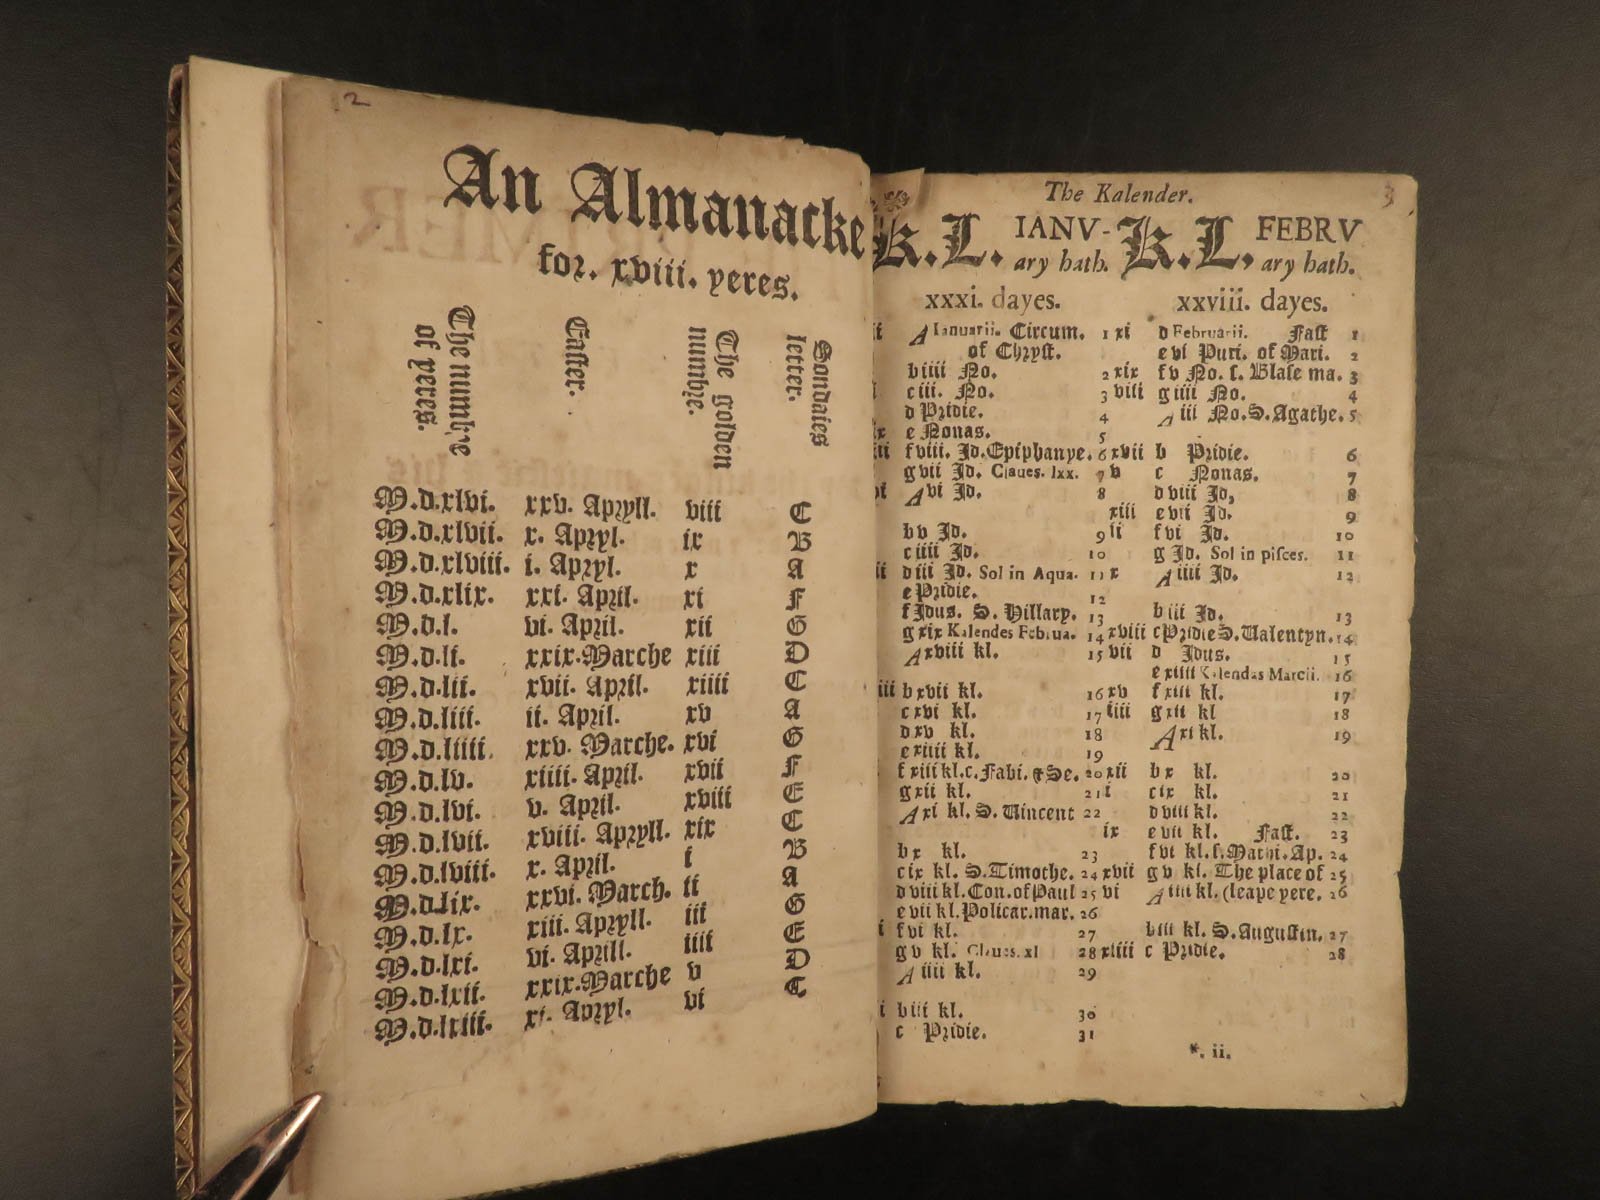 2
An Almanacke
for. xviii. yeres.
The numbre of yeres.
Easter.
The golden numbre.
Sondaies letter.
M.d.xlvi. xxv. Apryll. viii C
M.d.xlvii. x. Apryl. ix B
M.d.xlviii. i. Apryl. x A
M.d.xlix. xxi. April. xi F
M.d.l. vi. April. xii G
M.d.li. xxix. Marche xiii D
M.d.lii. xvii. April. xiiii C
M.d.liii. ii. April. xv A
M.d.liiii. xxv. Marche. xvi G
M.d.lv. xiiii. April. xvii F
M.d.lvi. v. April. xviii E
M.d.lvii. xviii. Apryll. xix C
M.d.lviii. x. April. i B
M.d.lix. xxvi. March. ii A
M.d.lx. xiii. Apryll. iii G
M.d.lxi. vi. Aprill. iiii E
M.d.lxii. xxix. Marche v D
M.d.lxiii. xi. Apryl. vi C
The Kalender.
3
k.L. IANV-
ary hath.
xxxi. dayes.
A Ianuarii. Circum. 1
of Chryst.
b iiii No. 2
c iii. No. 3
d Pridie. 4
e Nonas. 5
f viii. Id. Epiphanye. 6
g vii Id. Claues. lxx. 7
A vi Id. 8
b v Id. 9
c iiii Id. 10
d iii Id. Sol in Aqua. 11
e Pridie. 12
f Idus. S. Hillary. 13
g xix Kalendes Februa. 14
A xviii kl. 15
b xvii kl. 16
c xvi kl. 17
d xv kl. 18
e xiiii kl. 19
f xiii kl. c. Fabi. & Se. 20
g xii kl. 21
A xi kl. S. Uincent 22
b x kl. 23
c ix kl. S. Timothe. 24
d viii kl. Con. of Paul 25
e vii kl. Policar. mar. 26
f vi kl. 27
g v kl. Claues. xl 28
A iiii kl. 29
b iii kl. 30
c Pridie. 31
k.L. FEBRV
ary hath.
xxviii. dayes.
xi d Februarii. Fast 1
e vi Puri. of Mari. 2
xix f v No. s. Blase ma. 3
viii g iiii No. 4
A iii No. S. Agathe. 5
xvii b Pridie. 6
v c Nonas. 7
d viii Id, 8
xiii e vii Id. 9
ii f vi Id. 10
g Id. Sol in pisces. 11
x A iiii Id. 12
b iii Id. 13
xviii c Pridie S. Ualentyn. 14
vii d Idus. 15
e xiiii Kalendas Marcii. 16
xv f xiii kl. 17
iiii g xii kl 18
A xi kl. 19
xii b x kl. 20
i c ix kl. 21
d viii kl. 22
ix e vii kl. Fast. 23
f vi kl. s. Mathi. Ap. 24
xvii g v kl. The place of 25
vi A iiii kl. (leape yere. 26
b iii kl. S. Augustin. 27
xiiii c Pridie. 28
*. ii.